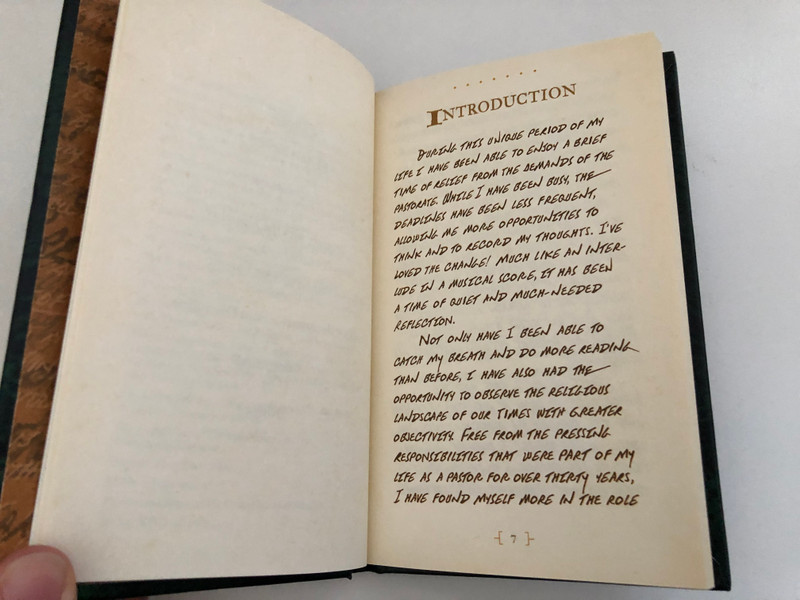 INTRODUCTION
DURING THIS UNIQUE PERIOD OF MY
LIFE I HAVE BEEN ABLE TO ENJOY A BRIEF
TIME OF RELIEF FROM THE DEMANDS OF THE
PASTORATE. WHILE I HAVE BEEN BUSY, THE
DEADLINES HAVE BEEN LESS FREQUENT,
ALLOWING ME MORE OPPORTUNITIES TO
THINK AND TO RECORD MY THOUGHTS. I'VE
LOVED THE CHANGE! MUCH LIKE AN INTER-
LUDE IN A MUSICAL SCORE, IT HAS BEEN
A TIME OF QUIET AND MUCH-NEEDED
REFLECTION.
NOT ONLY HAVE I BEEN ABLE TO
CATCH MY BREATH AND DO MORE READING
THAN BEFORE, I HAVE ALSO HAD THE
OPPORTUNITY TO OBSERVE THE RELIGIOUS
LANDSCAPE OF OUR TIMES WITH GREATER
OBJECTIVITY. FREE FROM THE PRESSING
RESPONSIBILITIES THAT WERE PART OF MY
LIFE AS A PASTOR FOR OVER THIRTY YEARS,
I HAVE FOUND MYSELF MORE IN THE ROLE
{ 7 }